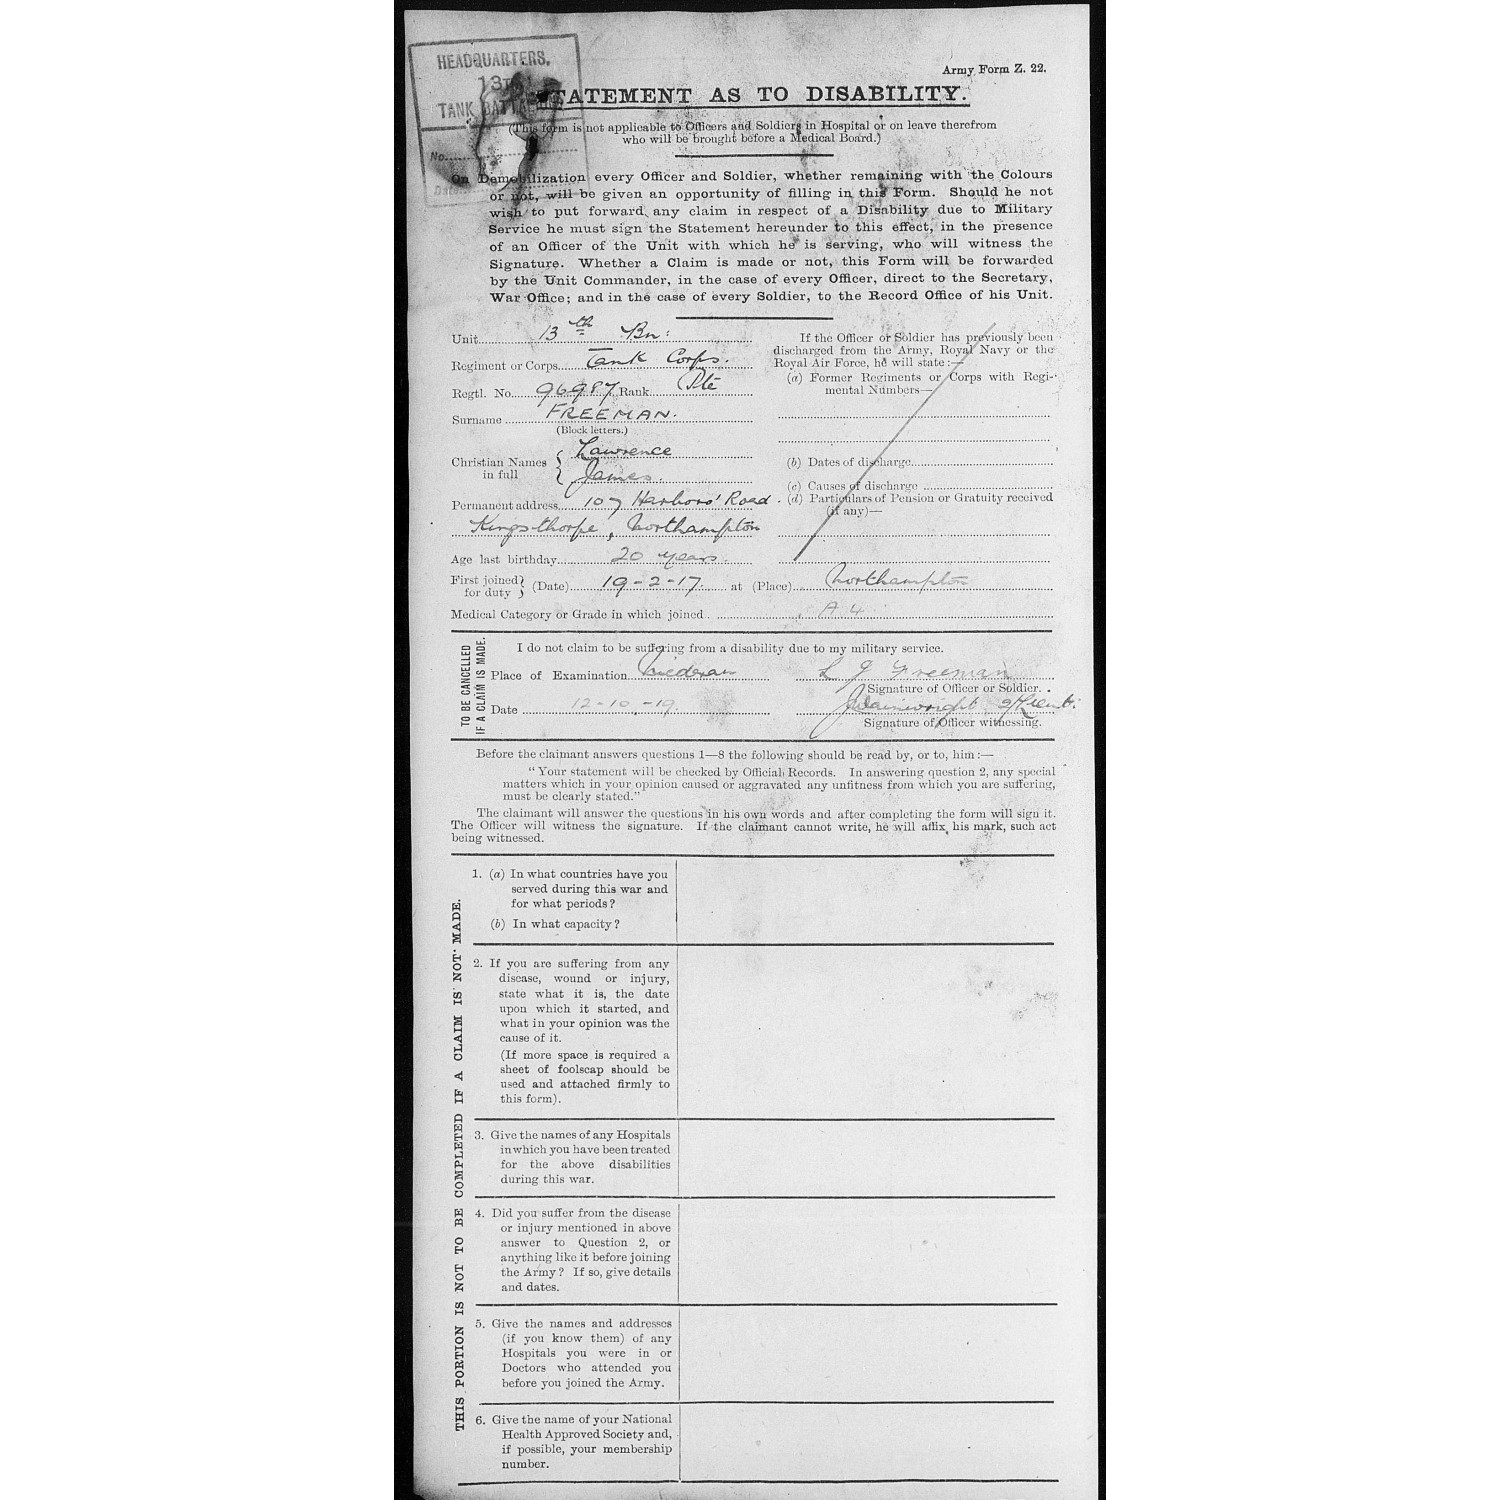 HEADQUARTERS,
TANK
No.
Army Form Z. 22.
STATEMENT AS TO DISABILITY.
(This form is not applicable to Officers and Soldiers in Hospital or on leave therefrom
who will be brought before a Medical Board.)
On Demobilization every Officer and Soldier, whether remaining with the Colours
or not, will be given an opportunity of filling in this Form. Should he not
wish to put forward any claim in respect of a Disability due to Military
Service he must sign the Statement hereunder to this effect, in the presence
of an Officer of the Unit with which he is serving, who will witness the
Signature. Whether a Claim is made or not, this Form will be forwarded
by the Unit Commander, in the case of every Officer, direct to the Secretary,
War Office; and in the case of every Soldier, to the Record Office of his Unit.
Unit 13th Bn:
Regiment or Corps Tank Corps.
Regtl. No. 96987 Rank Pte
Surname FREEMAN.
(Block letters.)
Christian Names in full Lawrence
James.
Permanent address 107 Harboro' Road.
Kingsthorpe, Northampton
Age last birthday 20 years.
If the Officer or Soldier has previously been
discharged from the Army, Royal Navy or the
Royal Air Force, he will state:—
(a) Former Regiments or Corps with Regi-
mental Numbers—
(b) Dates of discharge
(c) Causes of discharge
(d) Particulars of Pension or Gratuity received
(if any)—
First joined for duty (Date) 19-2-17. at (Place) Northampton
Medical Category or Grade in which joined. A 4
TO BE CANCELLED
IF A CLAIM IS MADE.
I do not claim to be suffering from a disability due to my military service.
Place of Examination L J Freeman
Signature of Officer or Soldier.
Date 12-10-19.
Signature of Officer witnessing.
Before the claimant answers questions 1—8 the following should be read by, or to, him:—
"Your statement will be checked by Official Records. In answering question 2, any special
matters which in your opinion caused or aggravated any unfitness from which you are suffering,
must be clearly stated."
The claimant will answer the questions in his own words and after completing the form will sign it.
The Officer will witness the signature. If the claimant cannot write, he will affix his mark, such act
being witnessed.
THIS PORTION IS NOT TO BE COMPLETED IF A CLAIM IS NOT MADE.
1. (a) In what countries have you
served during this war and
for what periods?
(b) In what capacity?
2. If you are suffering from any
disease, wound or injury,
state what it is, the date
upon which it started, and
what in your opinion was the
cause of it.
(If more space is required a
sheet of foolscap should be
used and attached firmly to
this form).
3. Give the names of any Hospitals
in which you have been treated
for the above disabilities
during this war.
4. Did you suffer from the disease
or injury mentioned in above
answer to Question 2, or
anything like it before joining
the Army? If so, give details
and dates.
5. Give the names and addresses
(if you know them) of any
Hospitals you were in or
Doctors who attended you
before you joined the Army.
6. Give the name of your National
Health Approved Society and,
if possible, your membership
number.